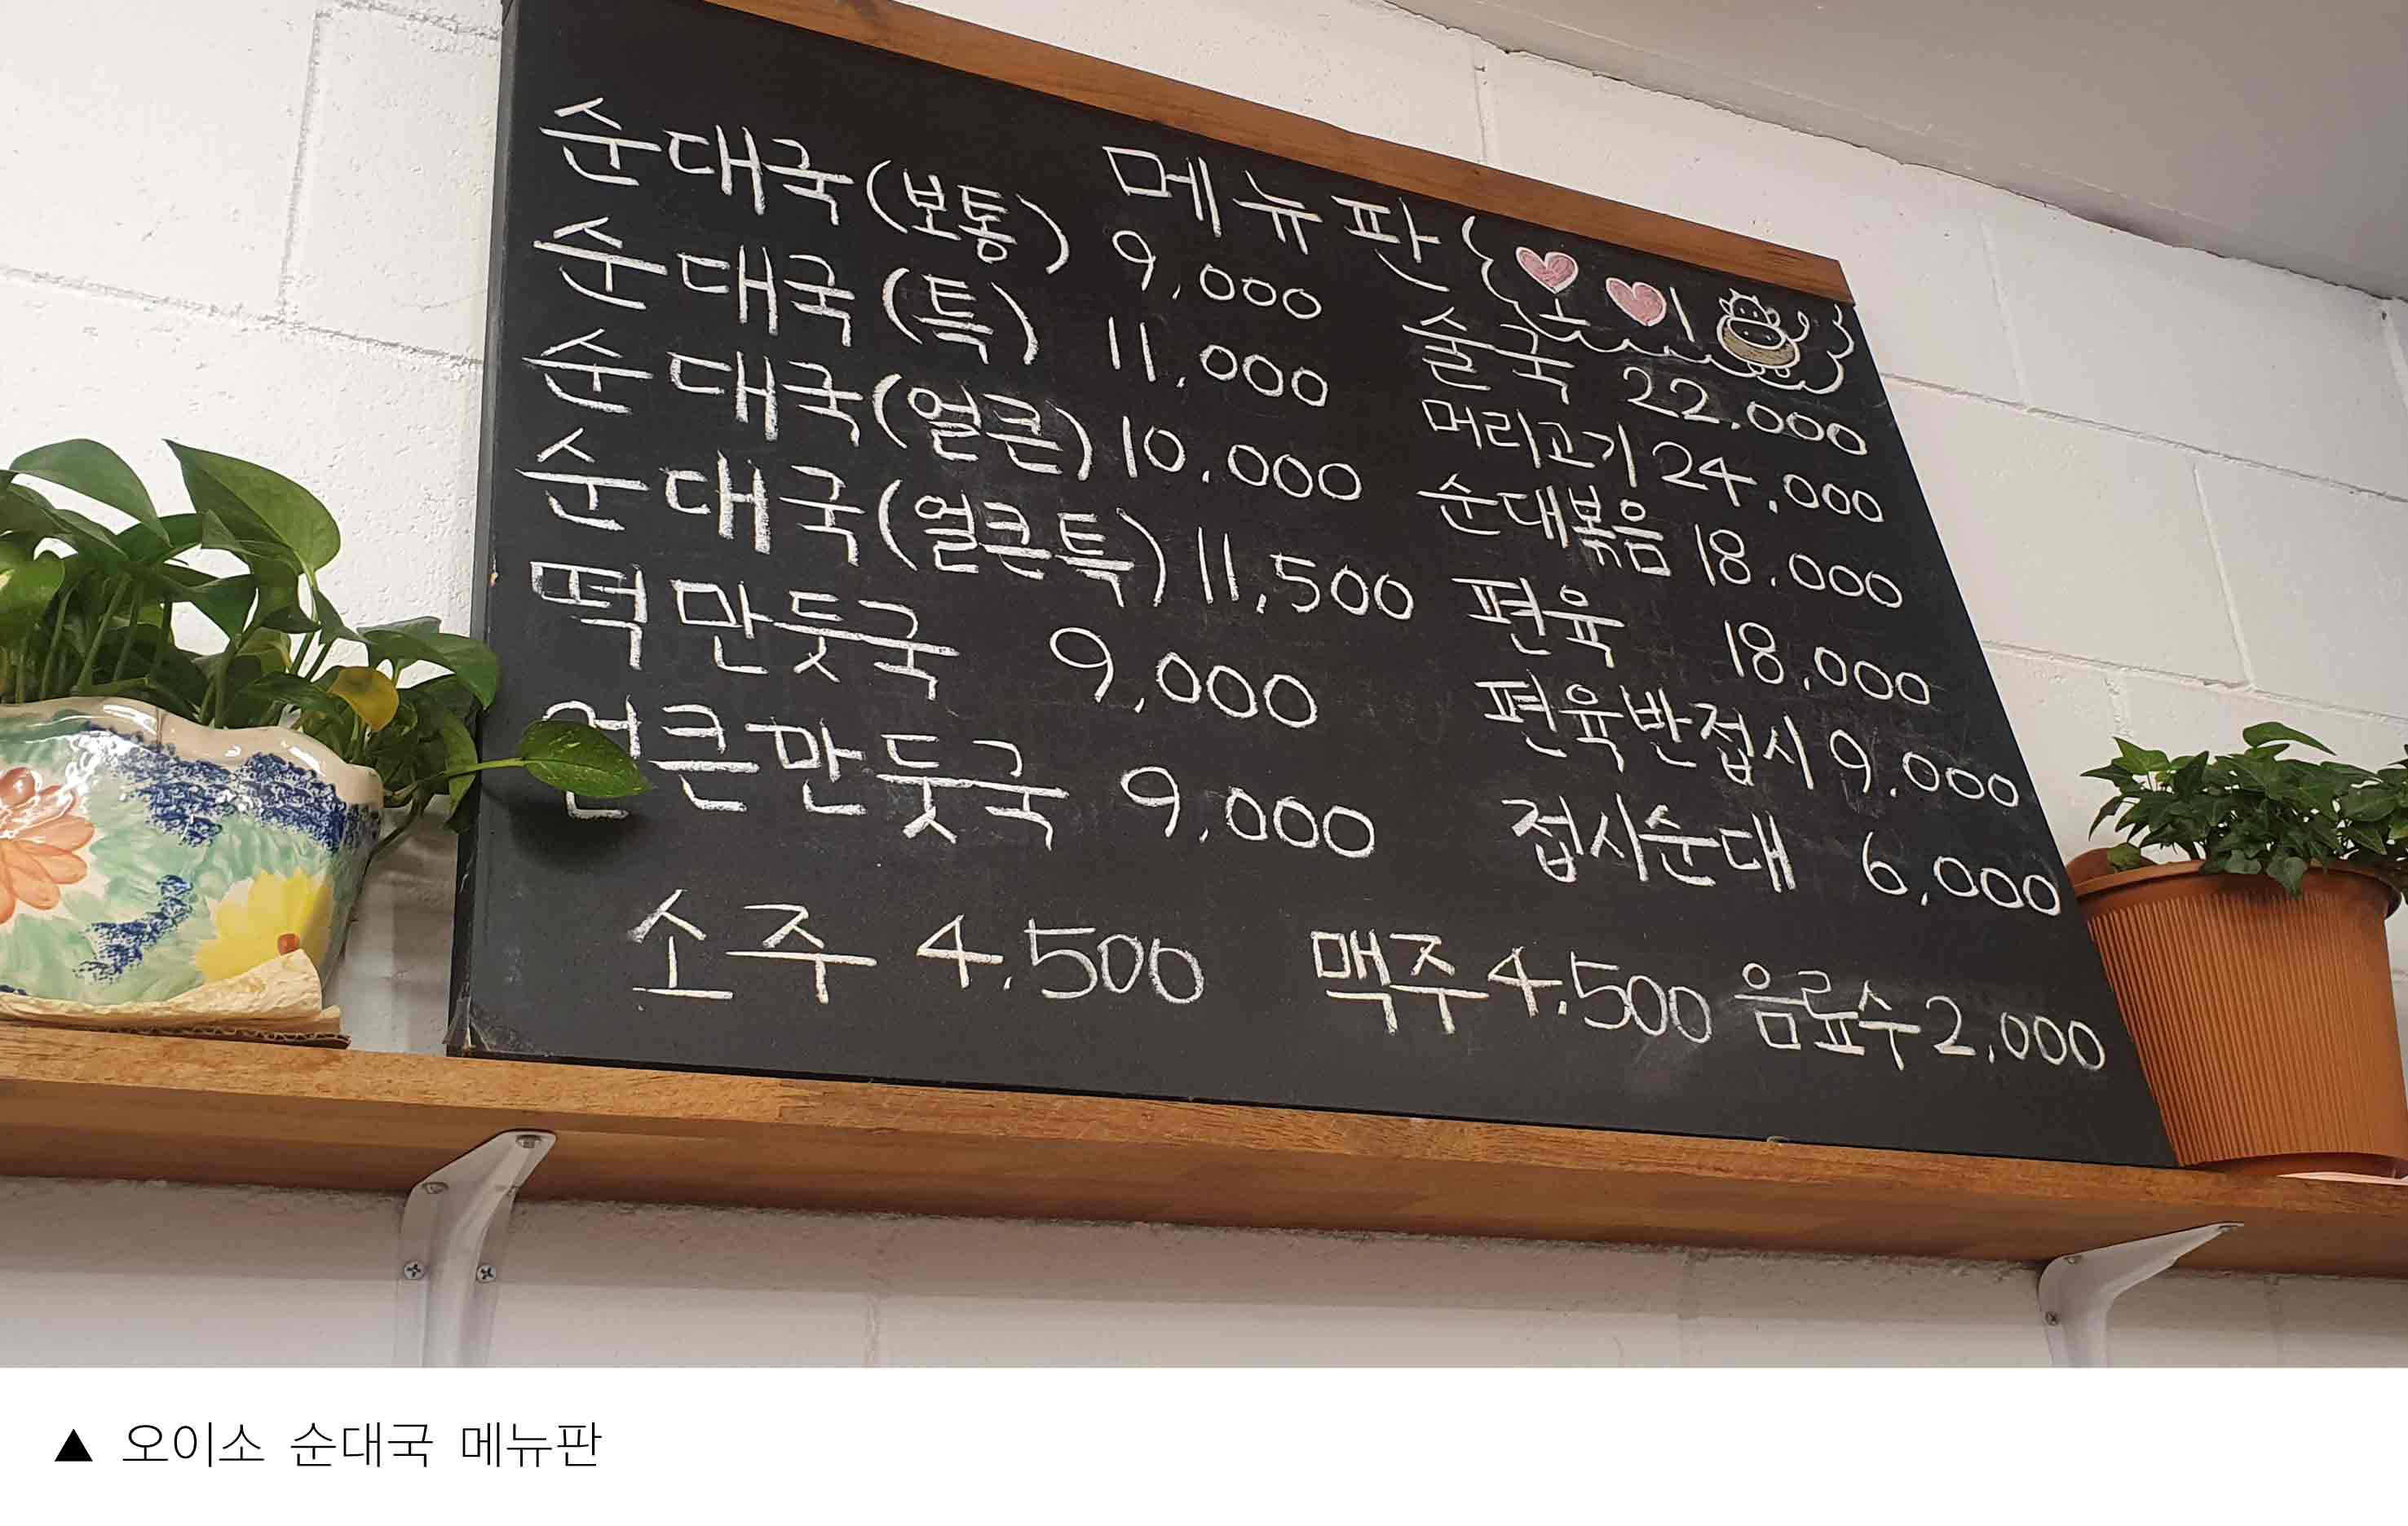 메뉴판
순대국(보통) 9,000
순대국(특) 11,000
순대국(얼큰) 10,000
순대국(얼큰특) 11,500
떡만둣국 9,000
얼큰만둣국 9,000
술국 22,000
머리고기 24,000
순대볶음 18,000
편육 18,000
편육반접시 9,000
접시순대 6,000
소주 4,500 맥주 4,500 음료수 2,000
▲ 오이소 순대국 메뉴판